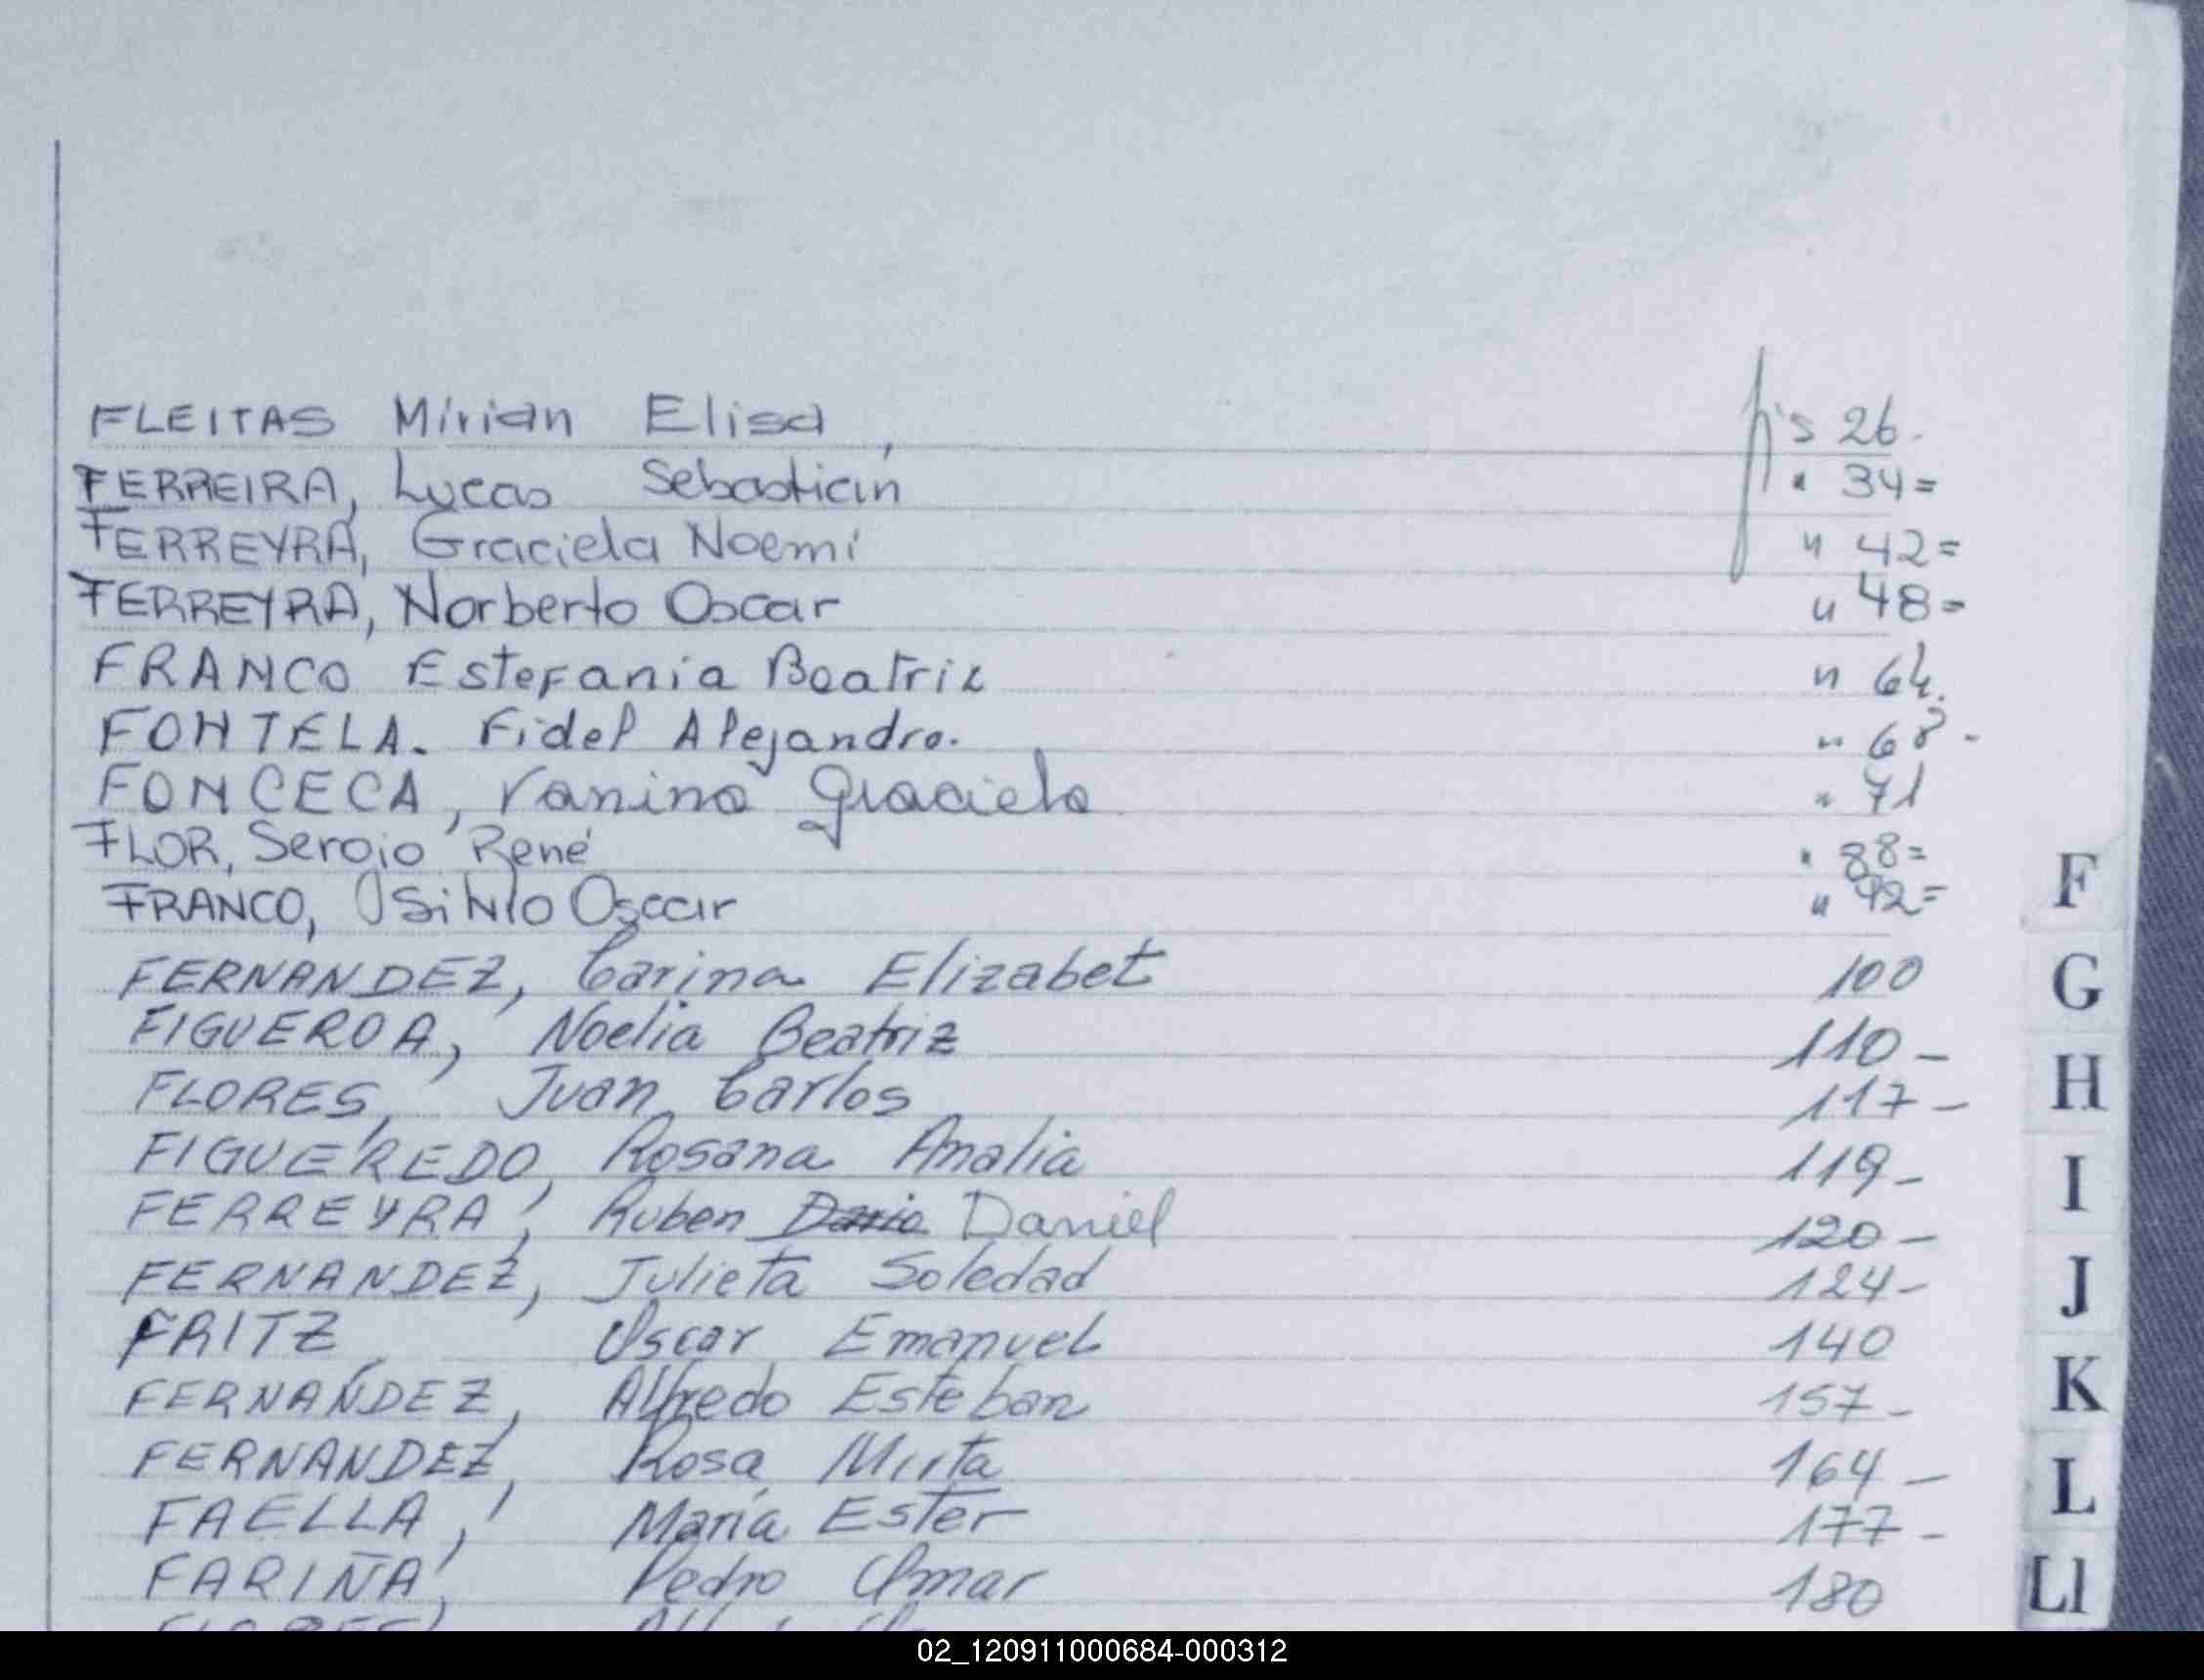 FLEITAS Mirian Elisa, p's 26.
FERREIRA, Lucas Sebastián " 34=
FERREYRA, Graciela Noemi " 42=
FERREYRA, Norberto Oscar " 48=
FRANCO Estefania Beatriz " 64.
FONTELA. Fidel Alejandro. " 68-
FONCECA, Vanina Graciela " 71
FLOR, Sergio René " 88=
FRANCO, Oscar " 92=
FERNANDEZ, Carina Elizabet 100
FIGUEROA, Noelia Beatriz 110-
FLORES, Juan Carlos 117-
FIGUEREDO, Rosana Analia 119-
FERREYRA, Ruben Dario Daniel 120-
FERNANDEZ, Julieta Soledad 124-
FRITZ, Oscar Emanuel 140
FERNANDEZ, Alfredo Esteban 157-
FERNANDEZ, Rosa Mirta 164-
FAELLA, María Ester 177-
FARIÑA, Pedro Omar 180
F
G
H
I
J
K
L
Ll
02_120911000684-000312